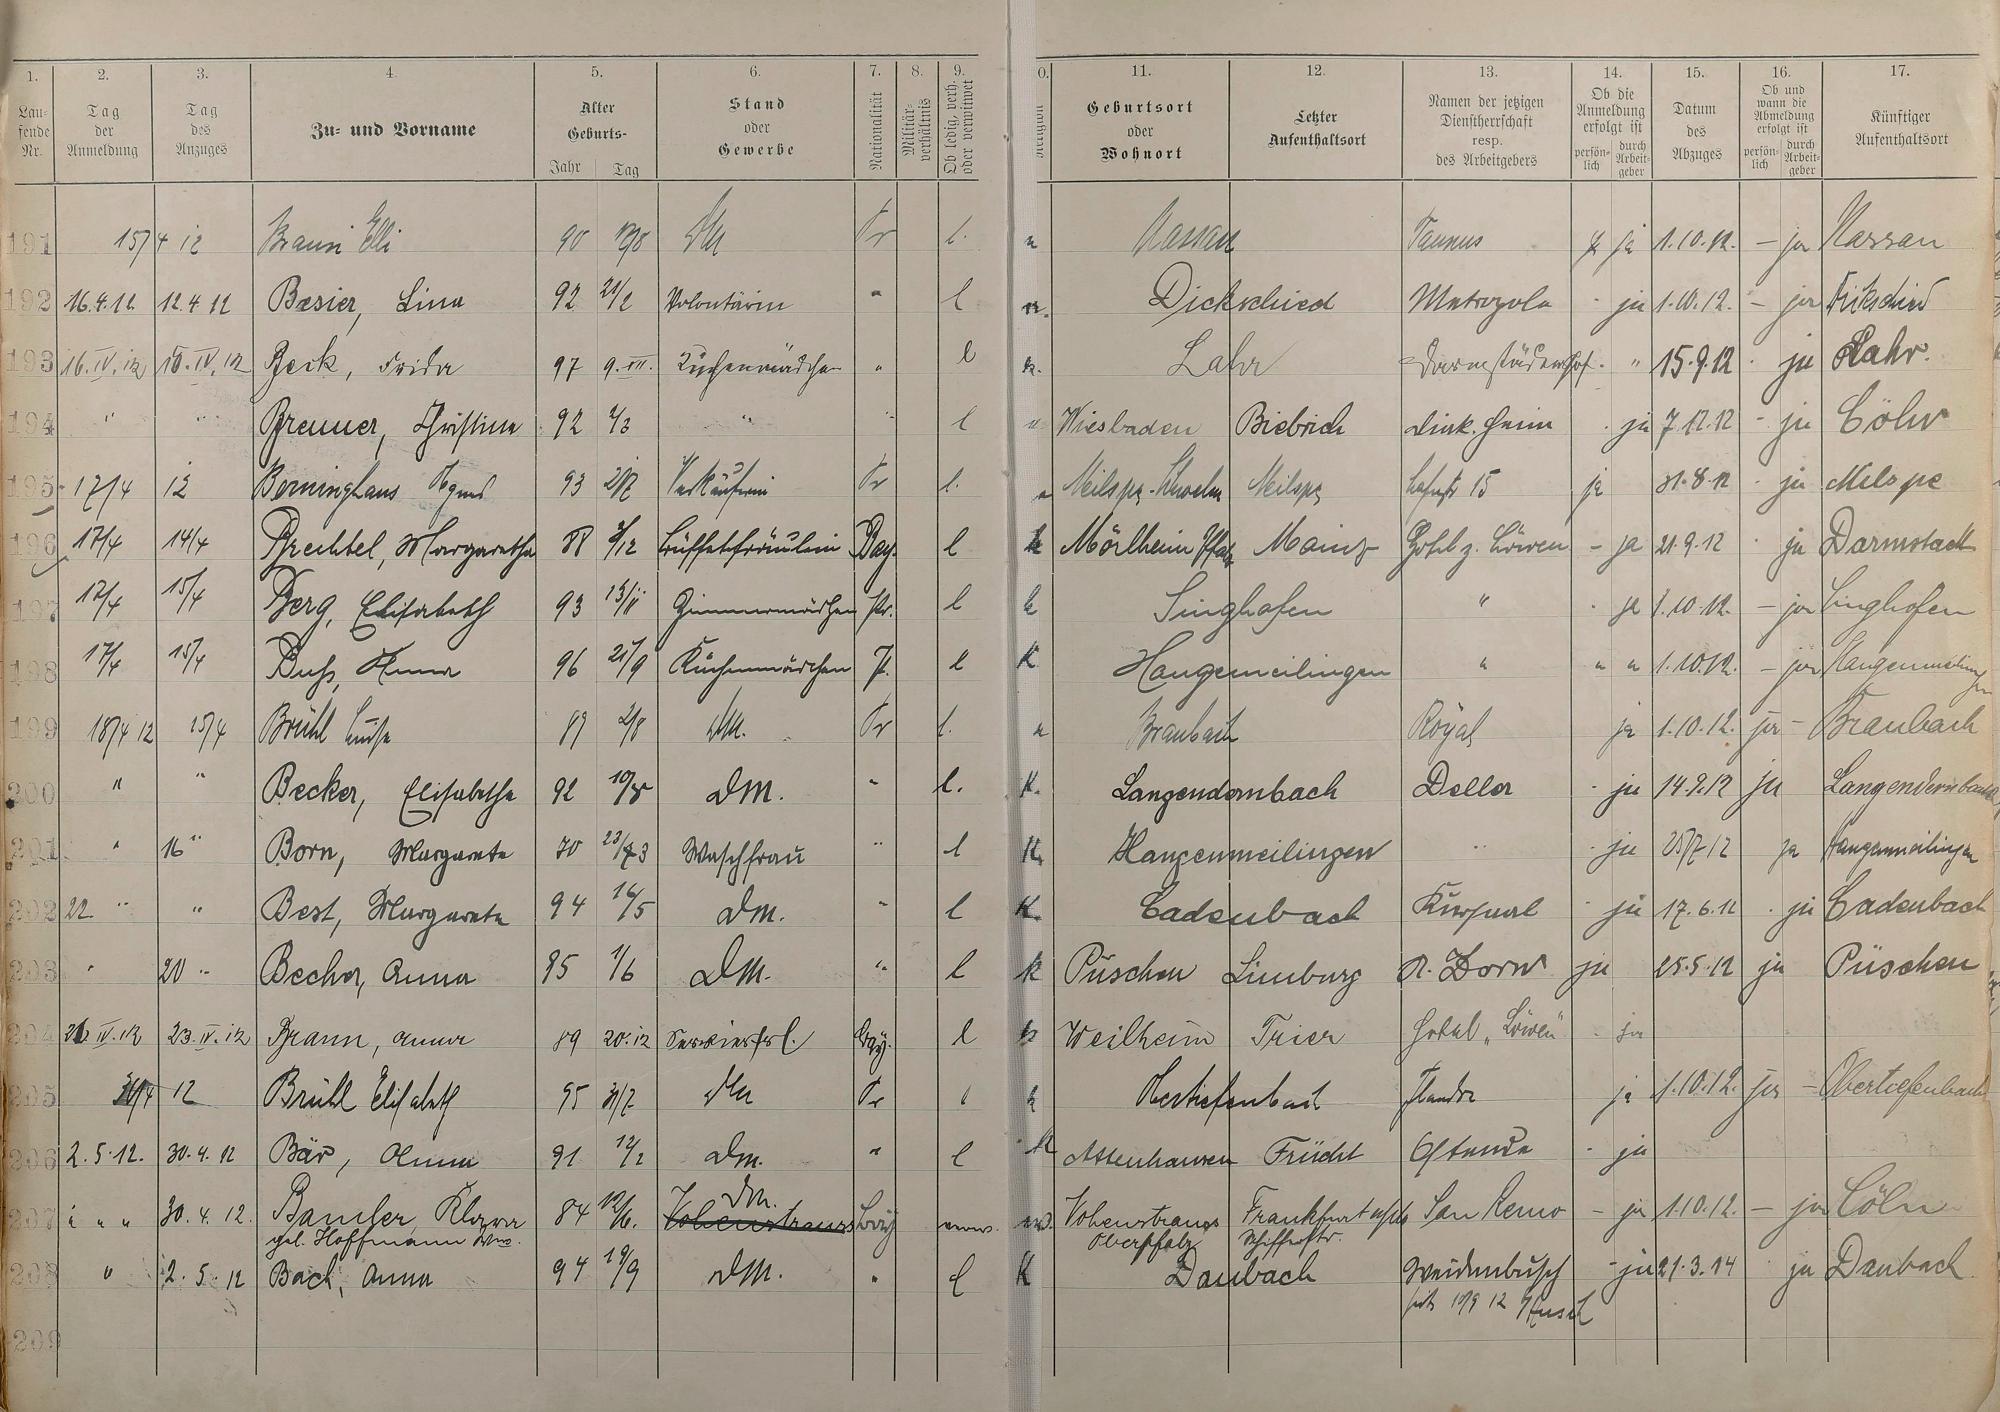 1. 2. 3. 4. 5. 6. 7. 8. 9. 0. 11. 12. 13. 14. 15. 16. 17.
Lau-
fende
Nr.
Tag
der
Anmeldung
Tag
des
Anzuges
Zu- und Vorname
Alter
Geburts-
Jahr Tag
Stand
oder
Gewerbe
Nationalität
Militär-
verhältnis
Ob ledig, verh.
oder verwitwet
Religion
Geburtsort
oder
Wohnort
Letzter
Aufenthaltsort
Namen der jetzigen
Dienstherrschaft
resp.
des Arbeitgebers
Ob die
Anmeldung
erfolgt ist
persön-
lich
durch
Arbeit-
geber
Datum
des
Abzuges
Ob und
wann die
Abmeldung
erfolgt ist
persön-
lich
durch
Arbeit-
geber
Künftiger
Aufenthaltsort
191 15/4 12 Elli 90 Dm Pr l. Nassau Taunus ja 1.10.12. – ja Nassau
192 16.4.12 12.4.12 Basier, Lina 92 21/2 Volontärin " l Dickschied Metropole - ja 1.10.12. – ja Dickschied
193 16.IV.12 10.IV.12 Beck, Frida 97 9.III. Küchenmädchen " l Lahr Darmstädterhof . " 15.9.12 . ja Lahr.
194 " " Brenner, Christine 92 " " l " Wiesbaden Biebrich . ja 7.12.12 - ja Cöln
195 17/4 12 Berninghaus Agnes 93 Verkäuferin Pr l. Milspe Schwelm Milspe 15 ja 31.8.12 . ja Milspe
196 17/4 14/4 Brechtel, Margaretha 88 Büffetfräulein Bay. l k Mörlheim Pfalz Mainz Hotel z. Löwen – ja 21.9.12 . ja Darmstadt
197 17/4 15/4 Berg, Elisabeth 93 13/11 Zimmermädchen Pr. l k Singhofen " . ja 1.10.12. – ja Singhofen
198 17/4 15/4 Buhs, Anna 96 21/9 Küchenmädchen P. l K Hangemeilingen " " " 1.10.12. – ja Hangenmeilingen
199 18/4 12 15/4 Brühl Luise 89 2/8 Dm. Pr l. Braubach Royal ja 1.10.12. ja – Braubach
200 " " Becker, Elisabetha 92 10/8 Dm. " l. K. Langendernbach Deller - ja 14.9.12 ja Langendernbach
201 " 16 " Born, Margarete 70 Waschfrau " l K. Hangenmeilingen " - ja 25/7 12 ja Hangenmeilingen
202 22 " " Best, Margarete 94 16/5 Dm. " l K. Cadenbach Kursaal - ja 17.6.12 . ja Cadenbach
203 " 20 " Becher, Anna 95 1/6 Dm. " l k Püschen Limburg R. Dorn ja 25.5.12 ja Püschen
204 IV.12 23.IV.12 Braun, Anna 89 20.12 Servierfrl. Bay. l k Weilheim Trier Hotel „Löwen" - ja
205 30/4 12 Brühl Elisabeth 95 31/7 Dm Pr l k Obertiefenbach Flandre ja 1.10.12. ja – Obertiefenbach
206 2.5.12. 30.4.12 Bär, Anna 91 12/2 Dm. " l k Attenhausen Frücht Ostende - ja
207 " " " 30.4.12. Bamler, Klara 84 12/6. Dm. Vohenstrauss Bay verw. Vohenstrauss Frankfurt a/M San Remo – ja 1.10.12. – ja Cöln
geb. Hoffmann Oberpfalz Schifferstr.
208 " 2.5.12 Bach, Anna 94 19/9 Dm. " l K Daubach Weidenbusch - ja 21.3.14 . ja Daubach
seit 10/9 12
209